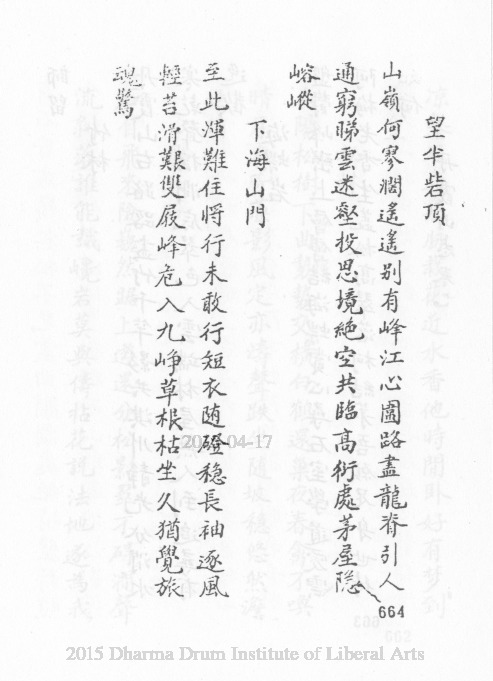 望半砦頂
山嶺何寥濶遙遙别有峰江心圖路盡龍脊引人
通窮睇雲迷壑投思境絶空共臨髙衖處茅屋隐
嵱嵷
下海山門
至此渾難住將行未敢行短衣随磴稳長袖逐風
輕苔滑艱雙屐峰危入九崢草根枯坐久猶覺旅
魂驚
664
2015 Dharma Drum Institute of Liberal Arts